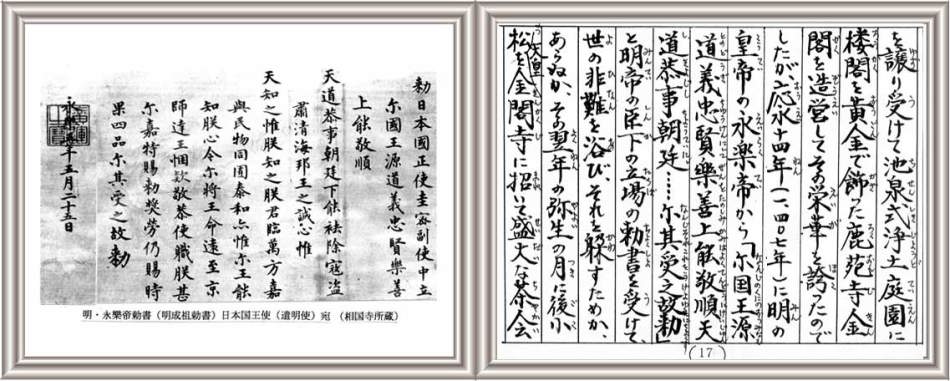 勅日本國正使圭密副使中立
尓國王源道義忠賢樂善
上能敬順
天道恭事朝廷下能袪除寇盗
肅清海邦王之誠心惟
天知之惟朕知之朕君臨萬方嘉
與民物同囿泰和亦惟尓王能
知朕心今尓將王命遠至京
師達王悃欵敬恭使職朕甚
尓嘉特賜勅奬勞仍賜時
果四品尓其受之故勅
永樂五年五月二十五日
明・永樂帝勅書（明成祖勅書）日本国王使（遣明使）宛　（相国寺所蔵）
を譲り受けて池泉式浄土庭園に
楼閣を黄金で飾った鹿苑寺金
閣を造営してその栄華を誇ったので
したが、応永十四年（一、四〇七年）に明の
皇帝の永楽帝から「尓国王源
道義忠賢樂善上能敬順天
道恭事朝廷……尓其受之故勅」
と明帝の臣下の立場の勅書を受けて、
世の非難を浴び、それを躱すためか、
あらぬか、その翌年の弥生の月に後小
松天皇を金閣寺に招いて盛大な茶会
(17)